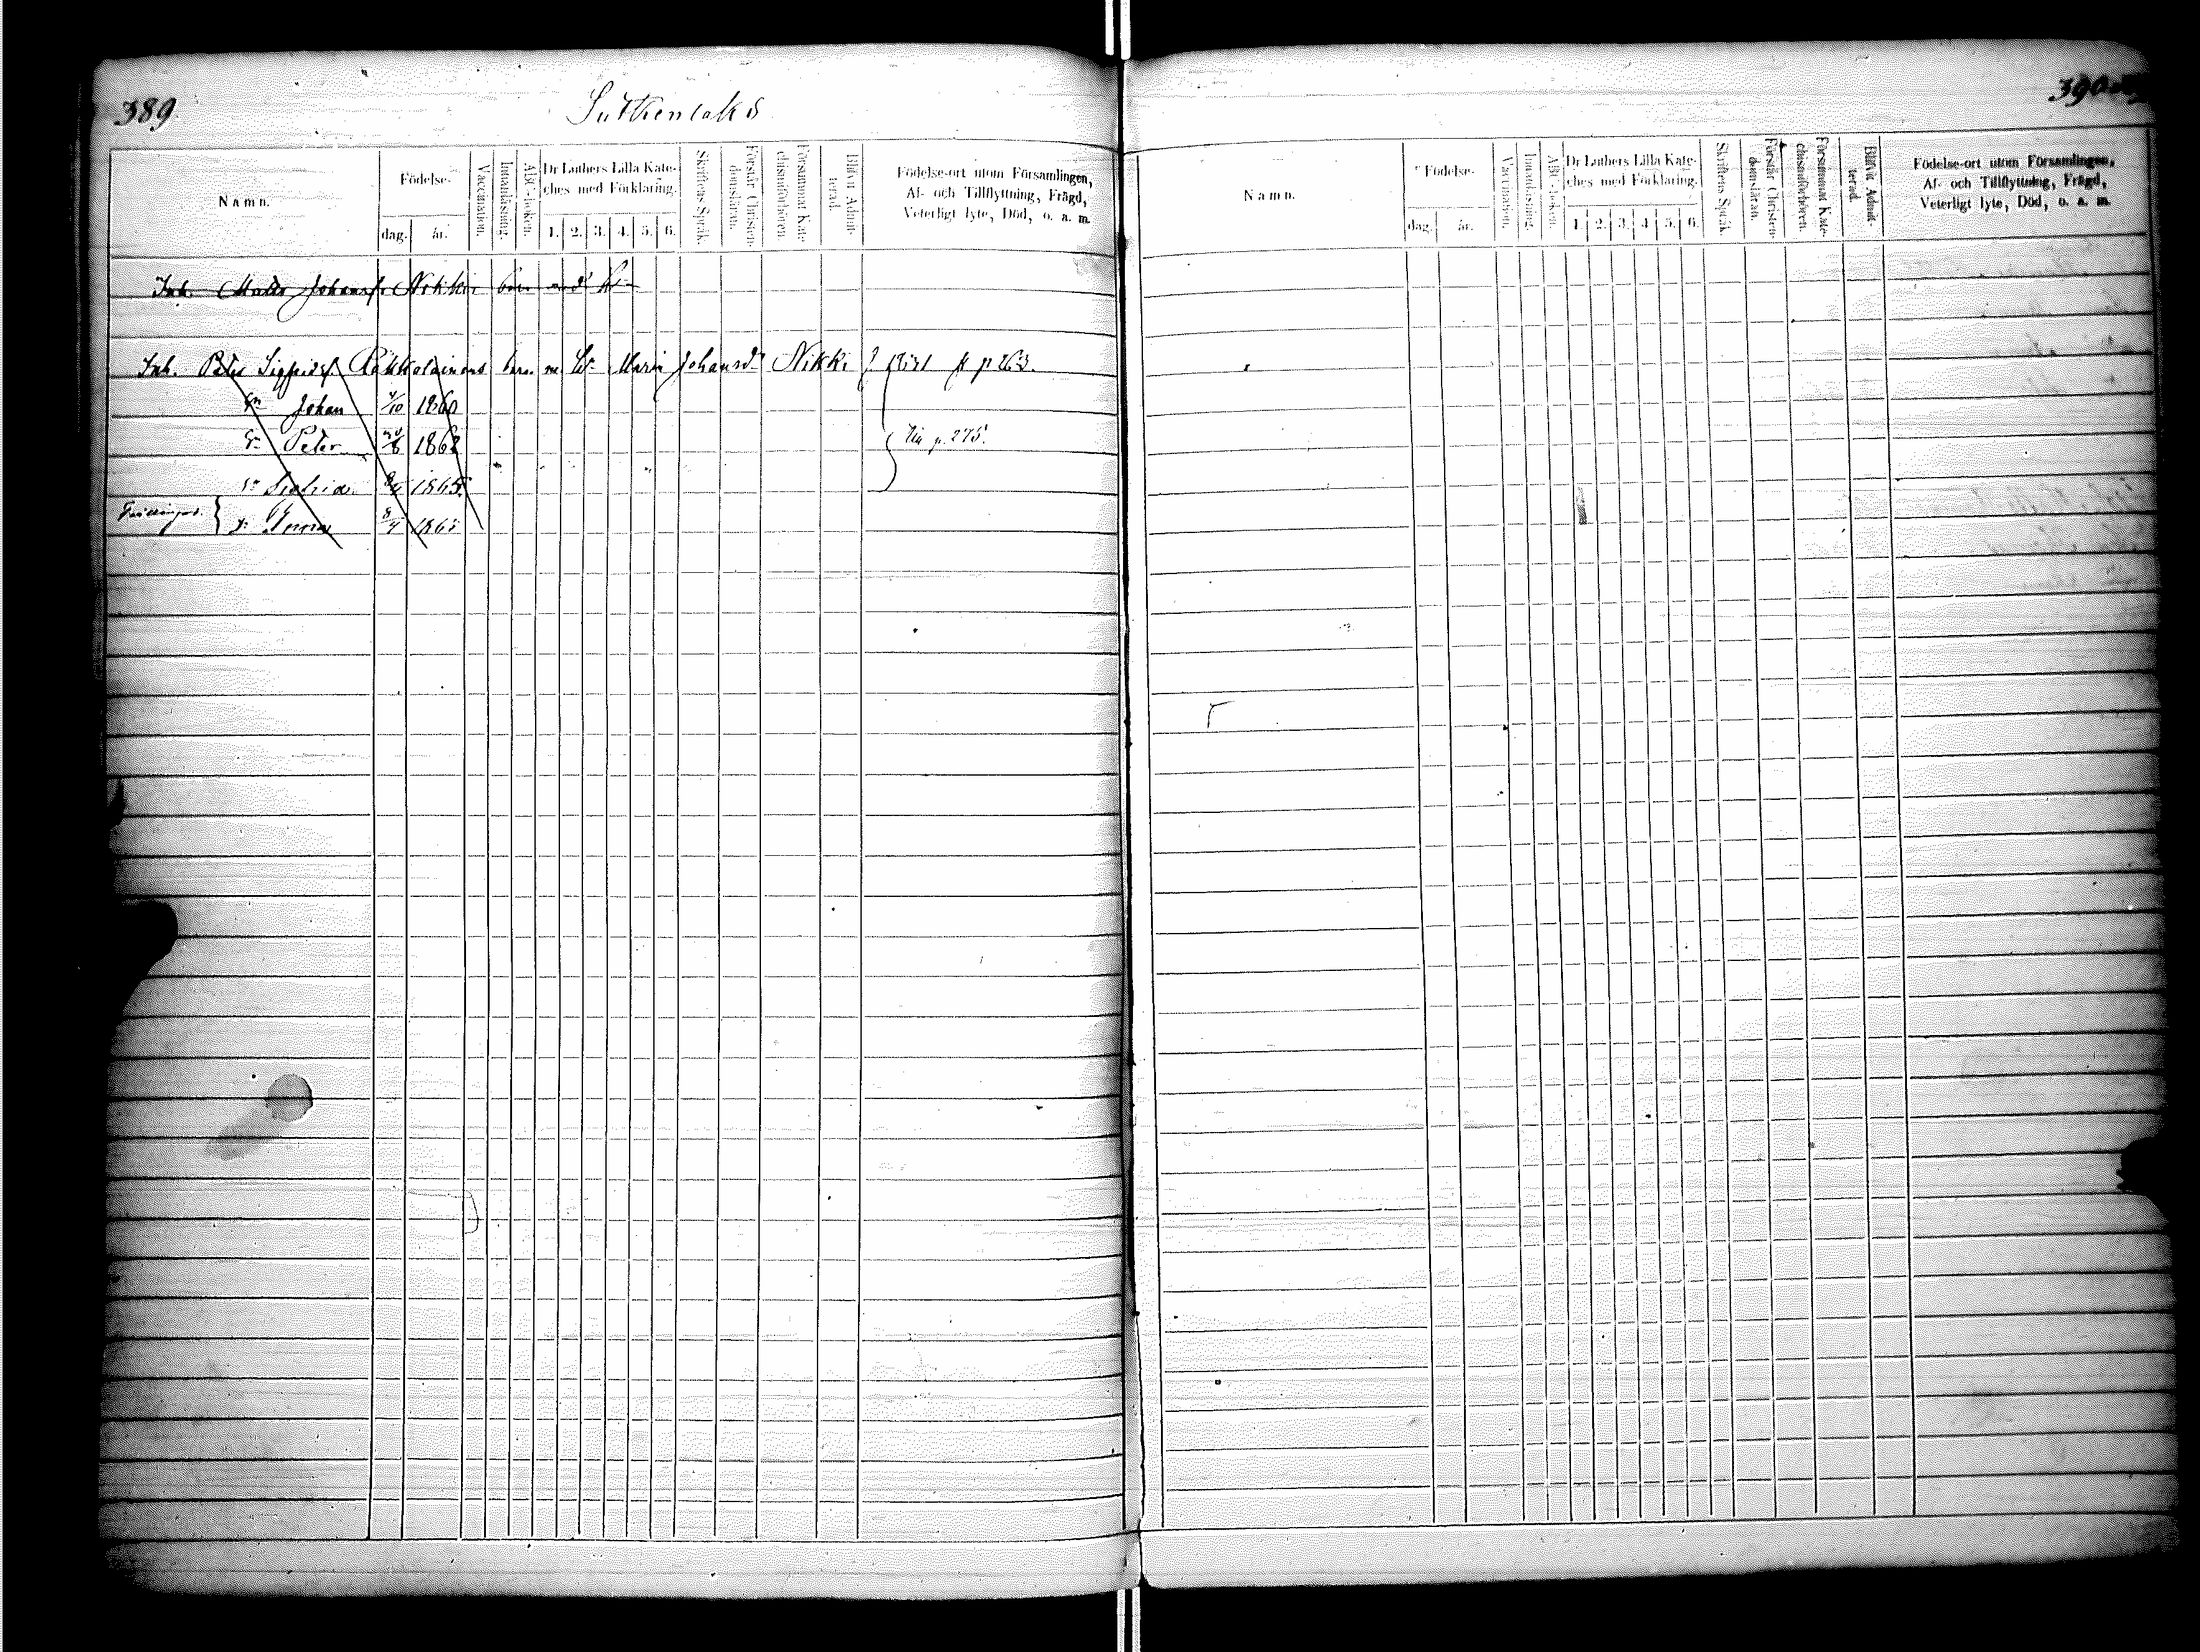 389
Suttkenlaks
390
Namn.
Födelse-
dag.
år.
Vaccination.
Innanläsning.
ABC-boken.
Dr Luthers Lilla Kate-
ches med Förklaring.
1. 2. 3. 4. 5. 6.
Skriftens Språk.
Förstår Christen-
domsläran.
Försummat Kate-
chismiförhören.
Blifvit Admit-
terad.
Födelse-ort utom Församlingen,
Af- och Tillflyttning, Frägd,
Veterligt lyte, Död, o. a. m.
Inh. Matts Johansf. Nikki
Inh. Peter Sigfridsf. m. H. Maria Johansdr Nikki p 263.
Sn Johan 1/10 1860
Sn Peter 1862
1865
Tvillingar Dr Anna 8/4 1865
p. 275.
Namn.
Födelse-
dag.
år.
Vaccination.
Innanläsning.
ABC-boken.
Dr Luthers Lilla Kate-
ches med Förklaring.
1. 2. 3. 4. 5. 6.
Skriftens Språk.
Förstår Christen-
domsläran.
Försummat Kate-
chismiförhören.
Blifvit Admit-
terad.
Födelse-ort utom Församlingen,
Af- och Tillflyttning, Frägd,
Veterligt lyte, Död, o. a. m.